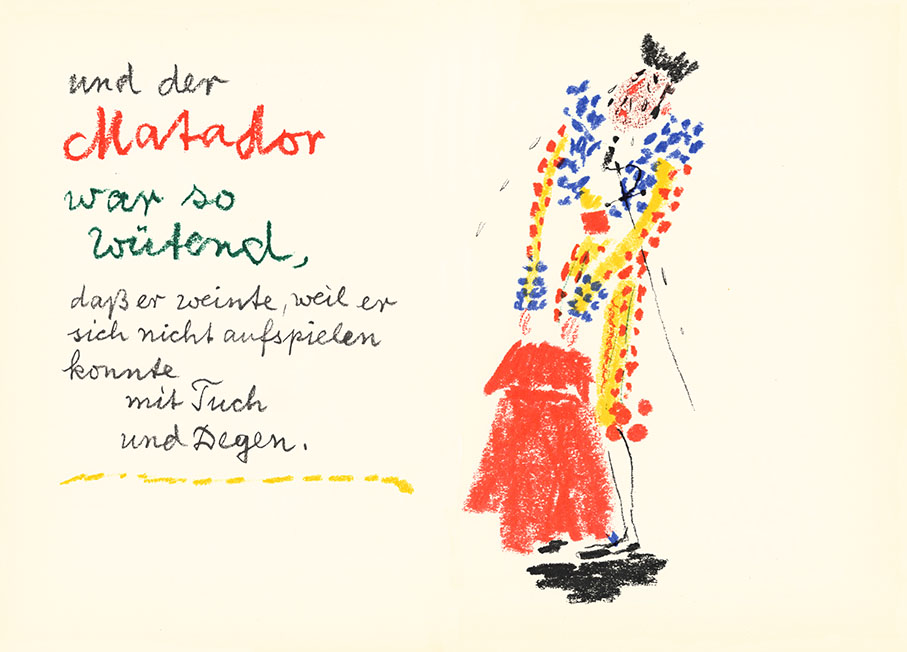 und der
Matador
war so
wütend,
daß er weinte, weil er
sich nicht aufspielen
konnte
mit Tuch
und Degen.